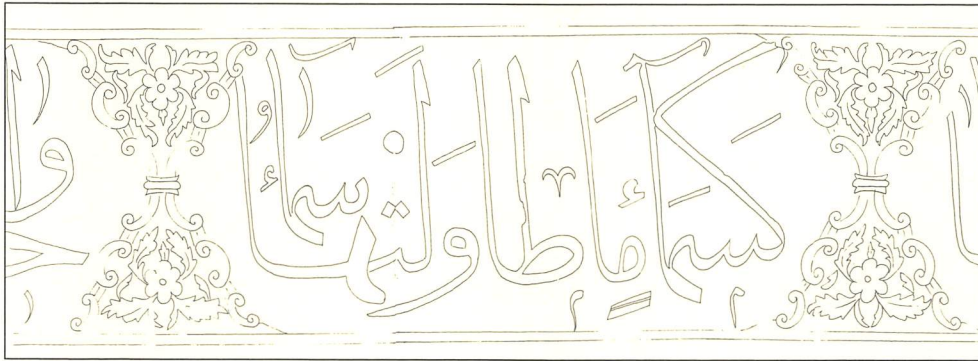 كَسَمَآءٍ مَا طَاوَلَتْهَا سَمَآءُ